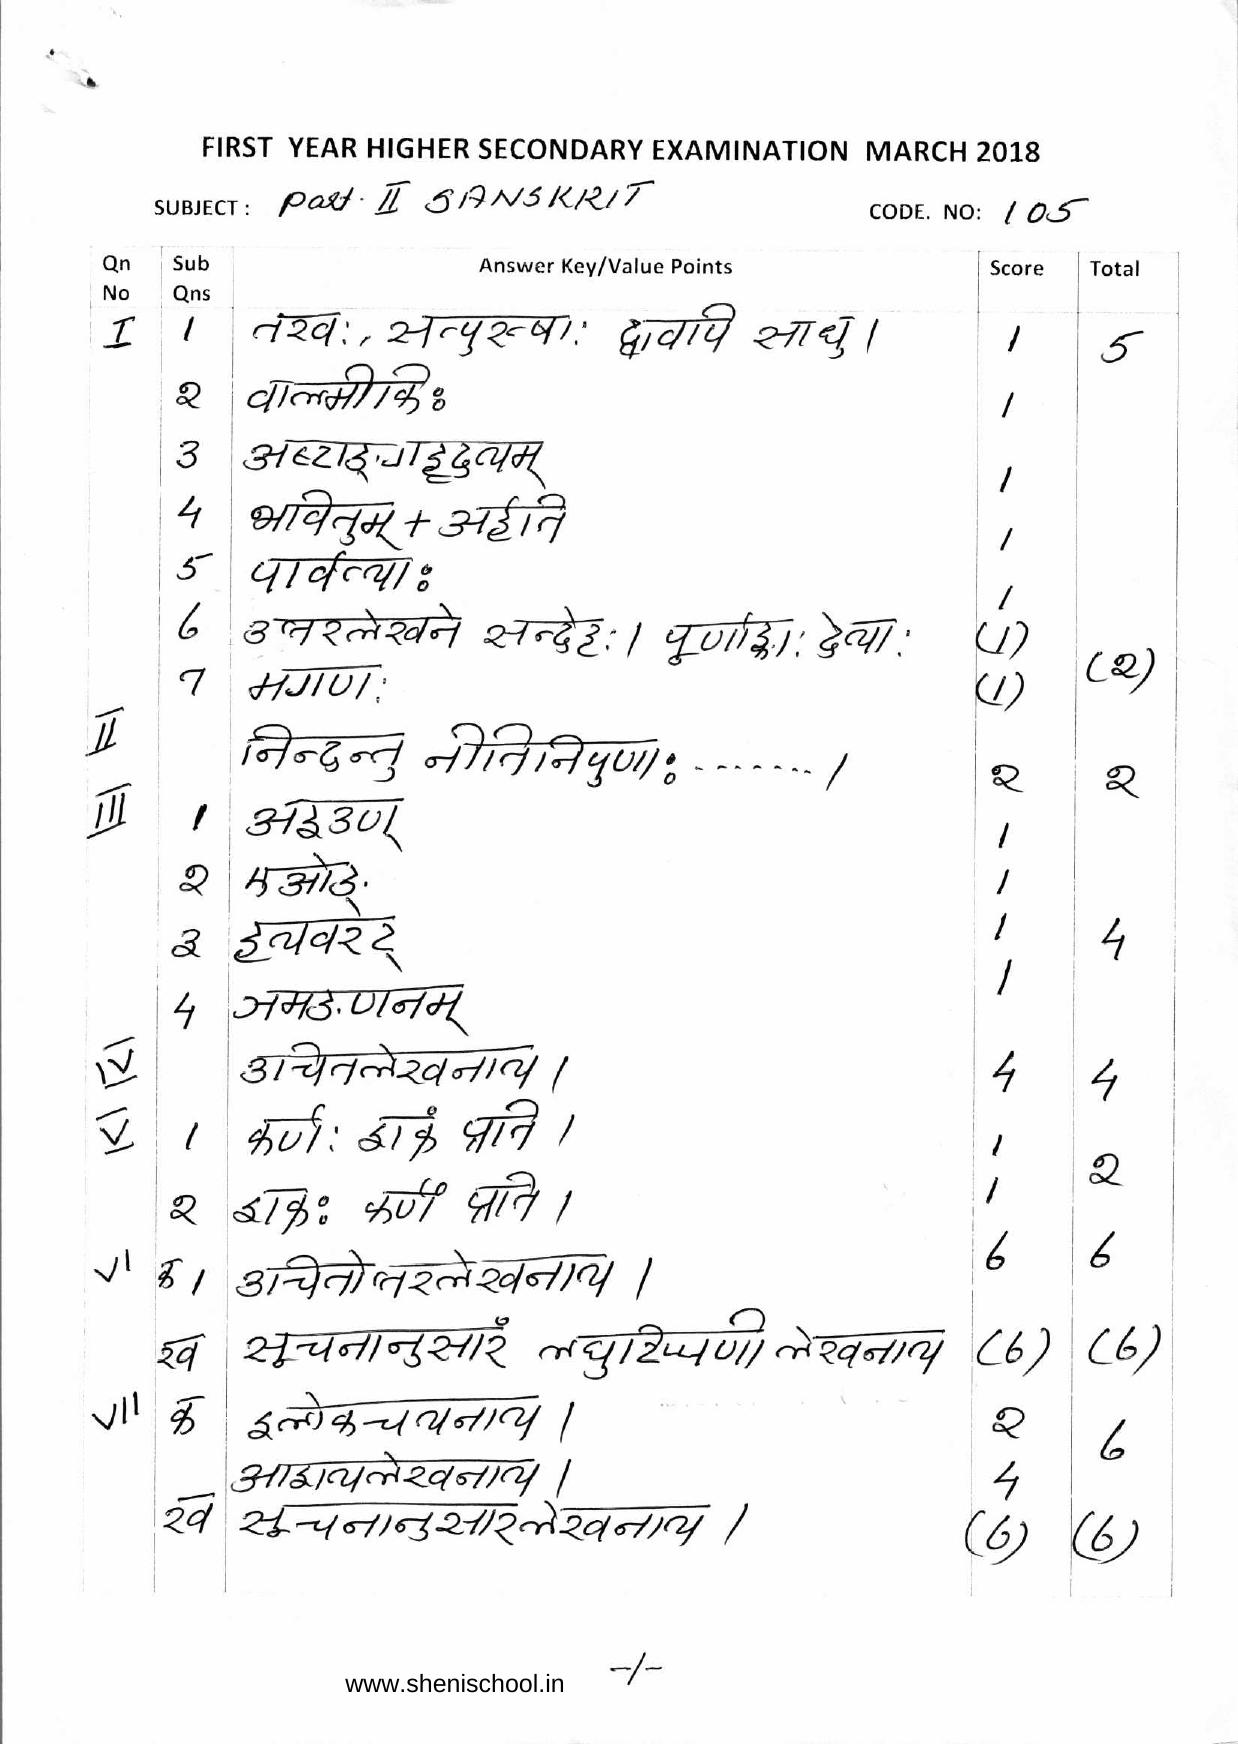 FIRST YEAR HIGHER SECONDARY EXAMINATION MARCH 2018
SUBJECT : Part. II SANSKRIT CODE. NO: 105
Qn No Sub Qns Answer Key/Value Points Score Total
I 1 तरवः, सत्पुरुषाः द्वावपि साधु। 1 5
2 वाल्मीकिः 1
3 अष्टाङ्गहृदयम् 1
4 भवितुम् + अर्हति 1
5 पार्वत्याः 1
6 उत्तरलेखने सन्देहः। पूर्णाङ्काः देयाः (1) (2)
7 मगणः (1)
II निन्दन्तु नीतिनिपुणाः ....... । 2 2
III 1 अइउण् 1
2 एओङ् 1
3 हयवरट् 1 4
4 ञमङणनम् 1
IV उचितलेखनाय। 4 4
V 1 कर्णः शक्रं प्रति। 1 2
2 शक्रः कर्णं प्रति। 1
VI क। उचितोत्तरलेखनाय। 6 6
ख सूचनानुसारं लघुटिप्पणी लेखनाय (6) (6)
VII क श्लोकचयनाय। 2 6
आशयलेखनाय। 4
ख सूचनानुसारलेखनाय। (6) (6)
-/-
www.shenischool.in